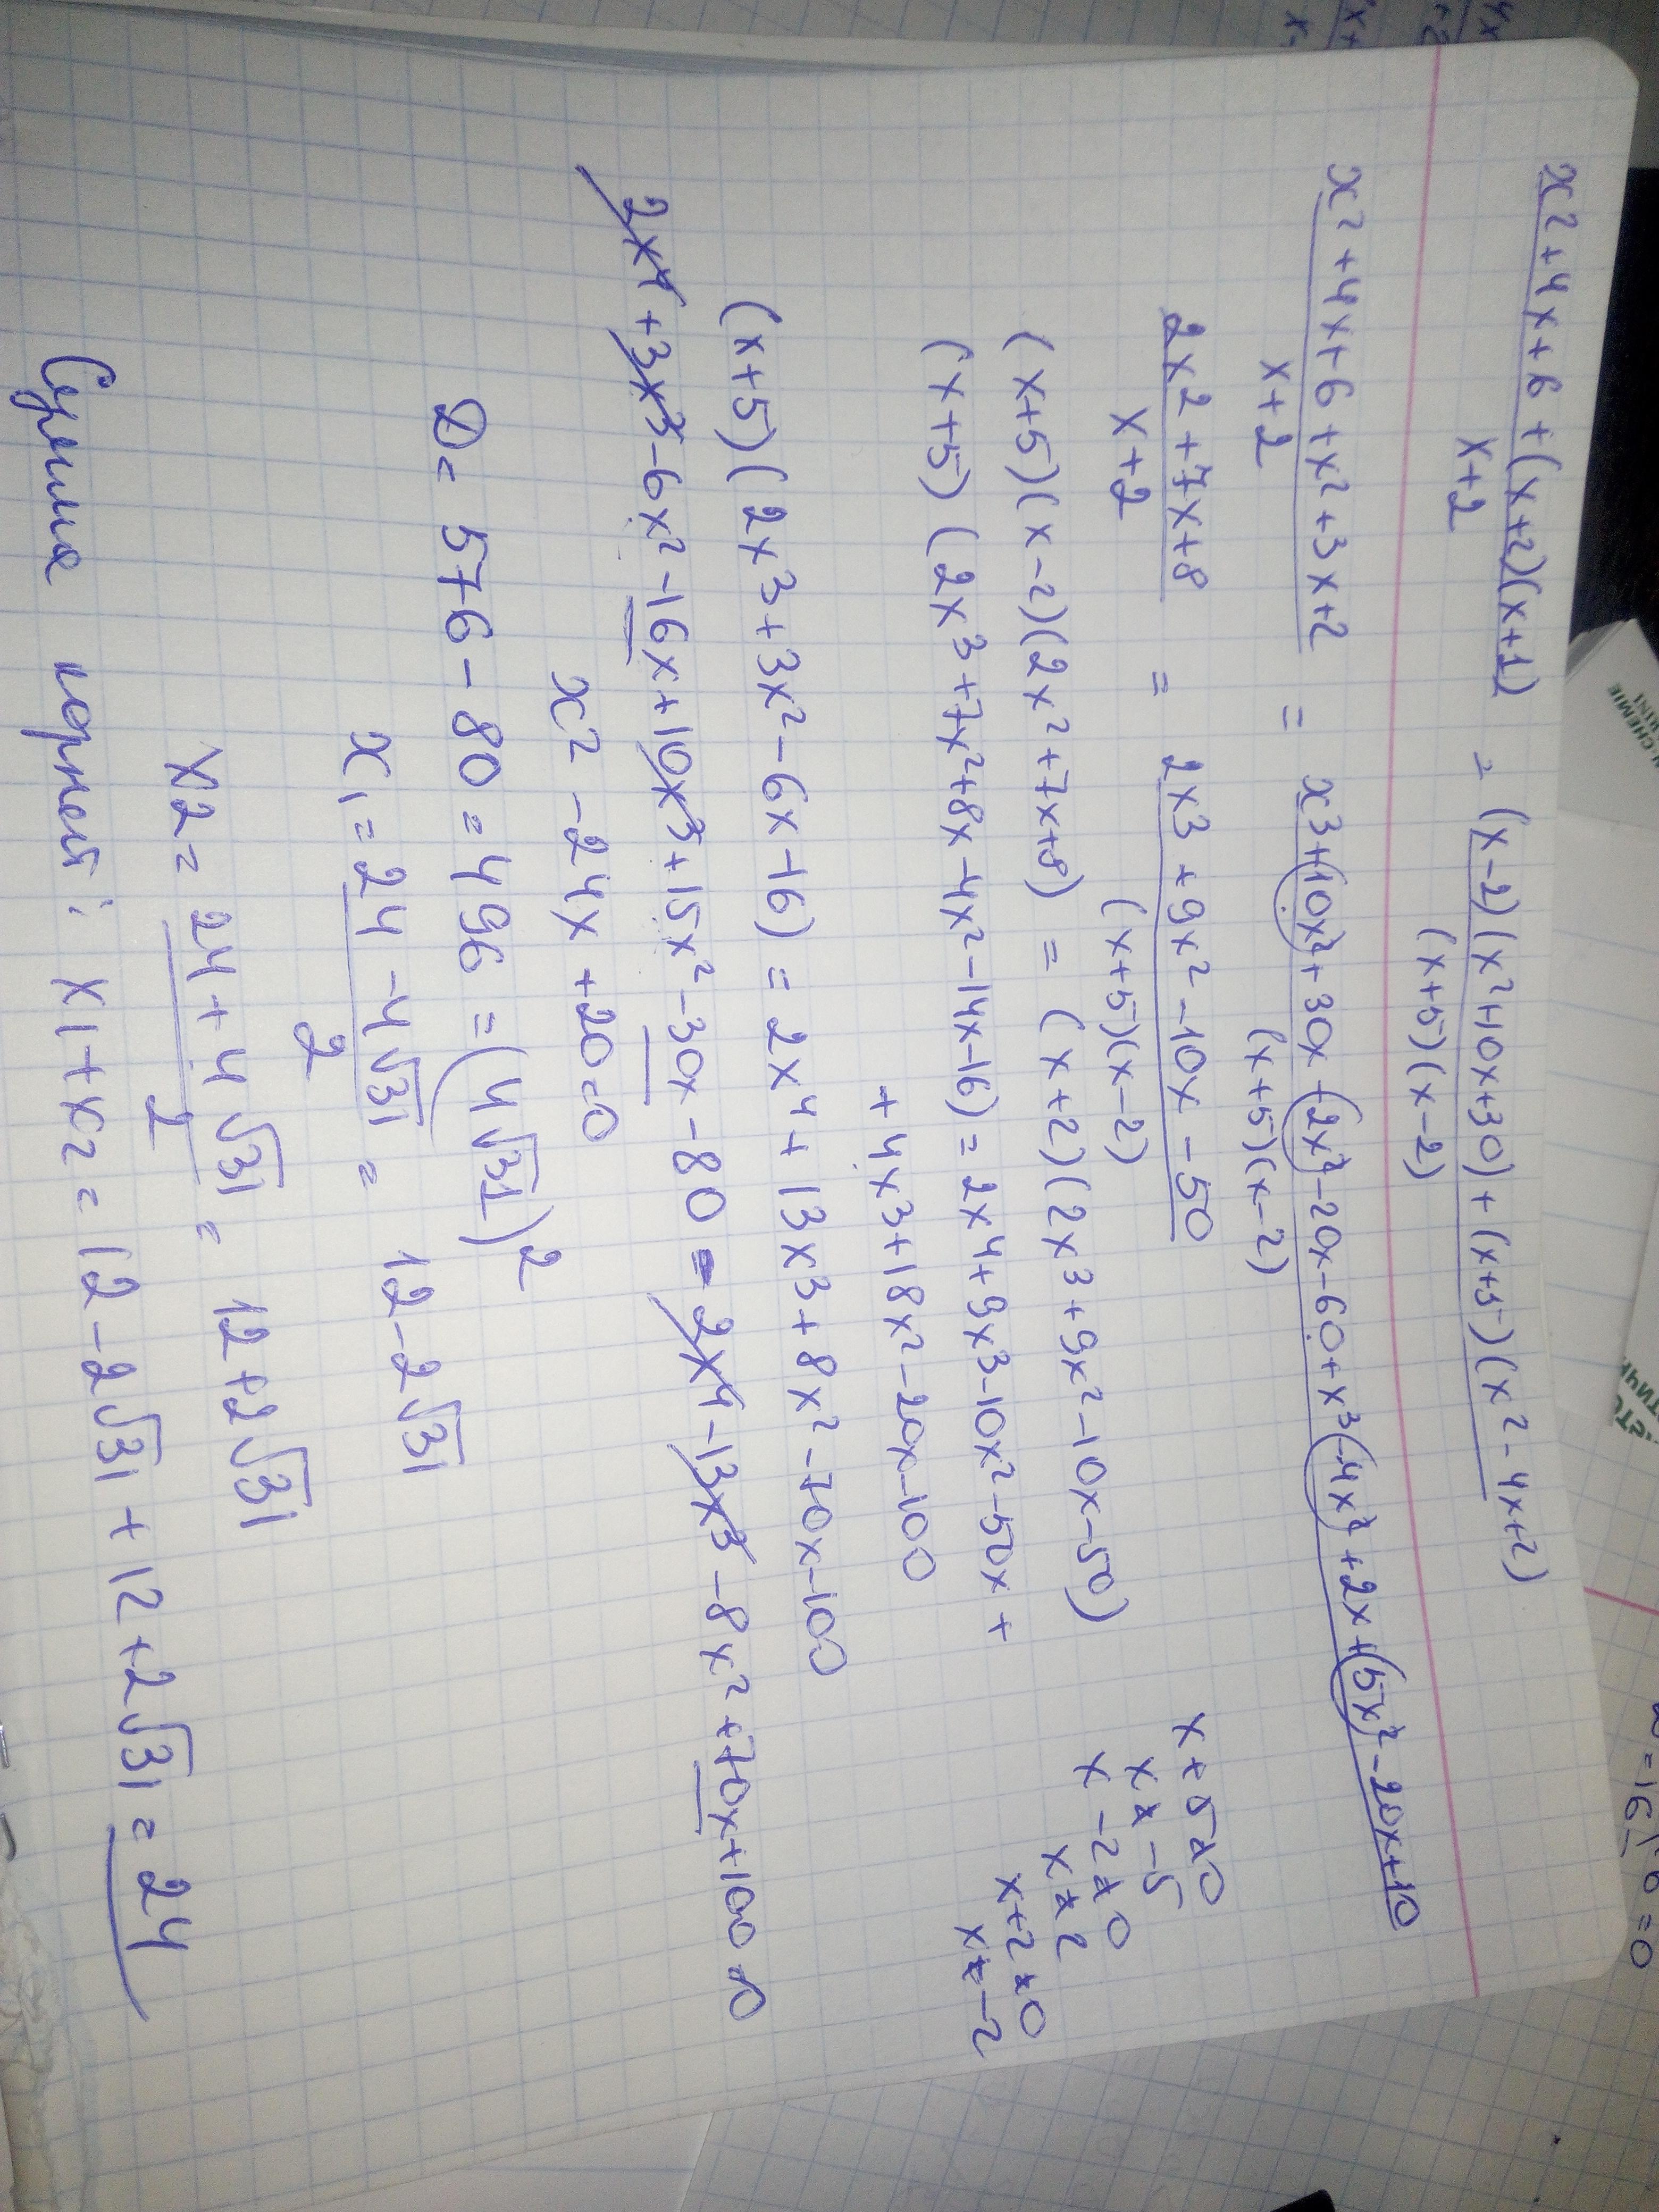 x² + 4x + 6 + (x+2)(x+1) = (x-2)(x²+10x+30) + (x+5)(x²-4x+2)
x+2 (x+5)(x-2)
x² + 4x + 6 + x² + 3x + 2 = x3 + 10x² + 30x - 2x² - 20x - 60 + x³ - 4x² + 2x + 5x² - 20x + 10
x+2 (x+5)(x-2)
2x2 + 7x + 8 = 2x3 + 9x2 - 10x - 50
x+2 (x+5)(x-2)
x+5≠0
x≠-5
x-2≠0
x≠2
x+2≠0
x≠-2
(x+5)(x-2)(2x²+7x+8) = (x+2)(2x³+9x²-10x-50)
(x+5)(2x³+7x²+8x-4x²-14x-16) = 2x4+9x3-10x²-50x+
+4x3+18x²-20x-100
(x+5)(2x3+3x2-6x-16) = 2x4+13x3+8x2-70x-100
2x4+3x3-6x²-16x+10x3+15x²-30x-80-2x4-13x3-8x²+70x+100=0
x2-24x+20=0
D=576-80=496=(4√31)2
x1=24-4√31 = 12-2√31
2
x2=24+4√31 = 12+2√31
2
Сумма корней: x1+x2=12-2√31+12+2√31=24